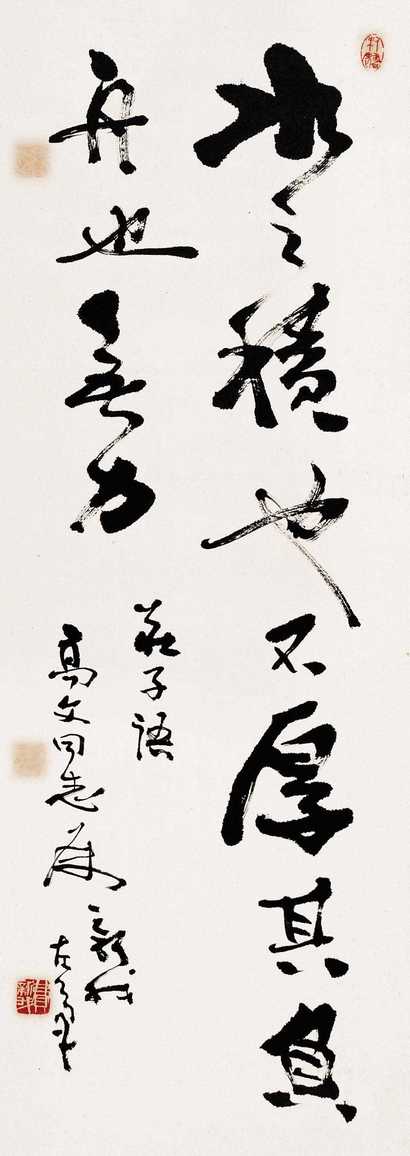 水之積也不厚其負
舟也無力
莊子語
高文同志屬
新我
左筆